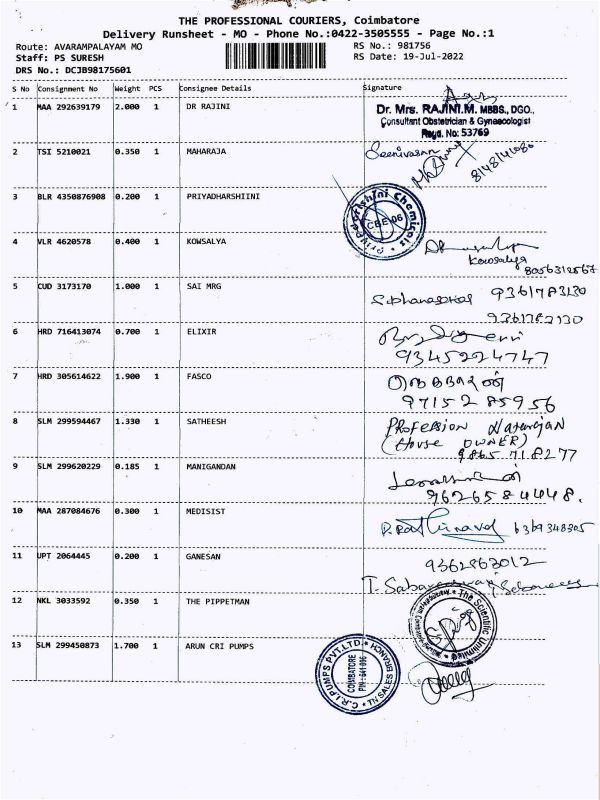 THE PROFESSIONAL COURIERS, Coimbatore
Delivery Runsheet - MO - Phone No.:0422-3505555 - Page No.:1
Route: AVARAMPALAYAM MO RS No.: 981756
Staff: PS SURESH RS Date: 19-Jul-2022
DRS No.: DCJB98175601
S No Consignment No Weight PCS Consignee Details Signature
1 MAA 292639179 2.000 1 DR RAJINI
Dr. Mrs. RAJINI.M. MBBS., DGO.,
Consultant Obstetrician & Gynaecologist
Regd. No: 53769
2 TSI 5210021 0.350 1 MAHARAJA
Seenivasan
8148141080
3 BLR 4350876908 0.200 1 PRIYADHARSHIINI
Priyadharshini Chemicals
CBE-06
4 VLR 4620578 0.400 1 KOWSALYA
Kowsalya
8056312567
5 CUD 3173170 1.000 1 SAI MRG
9361783130
9361783130
6 HRD 716413074 0.700 1 ELIXIR
9345224747
7 HRD 305614622 1.900 1 FASCO
9715285956
8 SLM 299594467 1.330 1 SATHEESH
Profession Natarajan
(House OWNER)
9865 718277
9 SLM 299620229 0.185 1 MANIGANDAN
9626584448.
10 MAA 287084676 0.300 1 MEDISIST
6369348305
11 UPT 2064445 0.200 1 GANESAN
9362863012
T. Sabareeswari
12 NKL 3033592 0.350 1 THE PIPPETMAN
The Scientific
13 SLM 299450873 1.700 1 ARUN CRI PUMPS
C.R.I. PUMPS PVT. LTD. TN SALES BRANCH
COIMBATORE
PIN-641 006